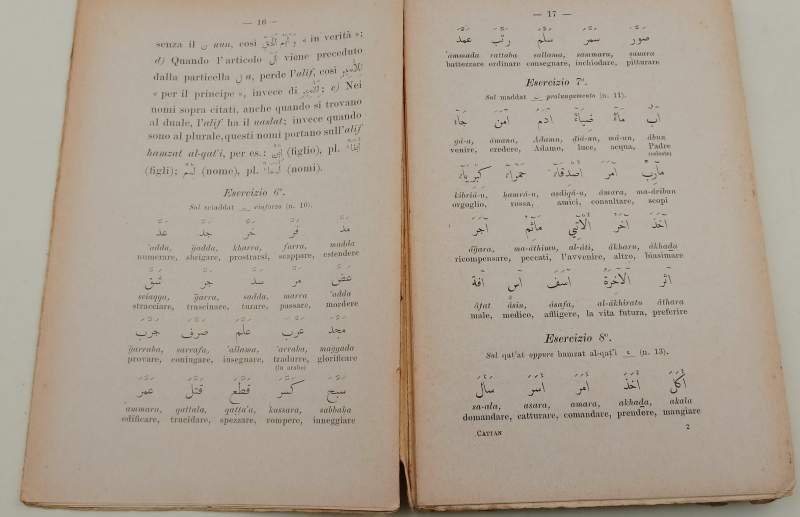 — 16 —
senza il ن nun, così « in verità »;
d) Quando l'articolo أل viene preceduto
dalla particella ل a, perde l'alif, così لِلْأَمِيرِ
« per il principe », invece di ; e) Nei
nomi sopra citati, anche quando si trovano
al duale, l'alif ha il uaslat; invece quando
sono al plurale, questi nomi portano sull'alif
hamzat al-qat'i, per es.: (figlio), pl.
(figli); (nome), pl. (nomi).
Esercizio 6º.
Sul sciaddat rinforzo (n. 10).
مَدَّ فَرَّ خَرَّ جَدَّ عَدَّ
'adda, ÿadda, kharra, farra, madda
numerare, sbrigare, prostrarsi, scappare, estendere
عَضَّ مَرَّ سَدَّ جَرَّ شَقَّ
sciaqqa, ÿarra, sadda, marra 'adda
stracciare, trascinare, turare, passare, mordere
مَجَّدَ عَرَّبَ عَلَّمَ صَرَّفَ جَرَّبَ
ÿarraba, sarrafa, 'allama, 'arraba, maÿÿada
provare, coniugare, insegnare, tradurre, glorificare
(in arabo)
سَبَّحَ كَسَّرَ قَطَّعَ قَتَّلَ عَمَّرَ
ammara, qattala, qatta'a, kassara, sabbaha
edificare, trucidare, spezzare, rompere, inneggiare
— 17 —
صَوَّرَ سَمَّرَ سَلَّمَ رَتَّبَ عَمَّدَ
'ammada rattaba sallama, sammara, sauara
battezzare ordinare consegnare, inchiodare, pitturare
Esercizio 7º.
Sul maddat prolungamento (n. 11).
آبٌ مَآءٌ ضِيَآءٌ آدَمُ آمَنَ جَآءَ
ÿá-a, ámana, Ádama, diá-un, má-un, ábun
venire, credere, Adamo, luce, acqua, Padre
(celeste)
مَآرِبُ آمَرَ أَصْدِقَآءُ حَمْرَآءُ كِبْرِيَآءُ
kibriiá-u, hamrá-u, asdiqá-u, ámara, ma-áribun
orgoglio, rossa, amici, consultare, scopi
آخَذَ آخَرُ الْآتِي مَآثِمُ آجَرَ
áÿara, ma-áthimu, al-áti, ákharu, ákhada
ricompensare, peccati, l'avvenire, altro, biasimare
آثَرَ الْآخِرَةُ آسَفَ آسٍ آفَة
áfat ásin, ásafa, al-ákhiratu áthara
male, medico, affligere, la vita futura, preferire
Esercizio 8º.
Sul qat'at oppure hamzat al-qat'i ء (n. 13).
أَكَلَ أَخَذَ أَمَرَ أَسَرَ سَأَلَ
sa-ala, asara, amara, akhada, akala
domandare, catturare, comandare, prendere, mangiare
Cattan 2